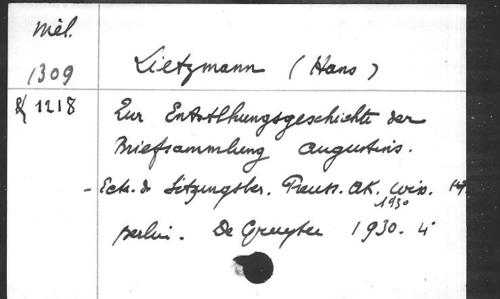 Mél.
1309
Lietzmann (Hans)
1218
Zur Entstehungsgeschichte der
Briefsammlung Augustins.
- Extr. dr Sitzungsber. Preuss. Ak. Wiss.
1930
Berlin. De Gruyter 1930. 4°